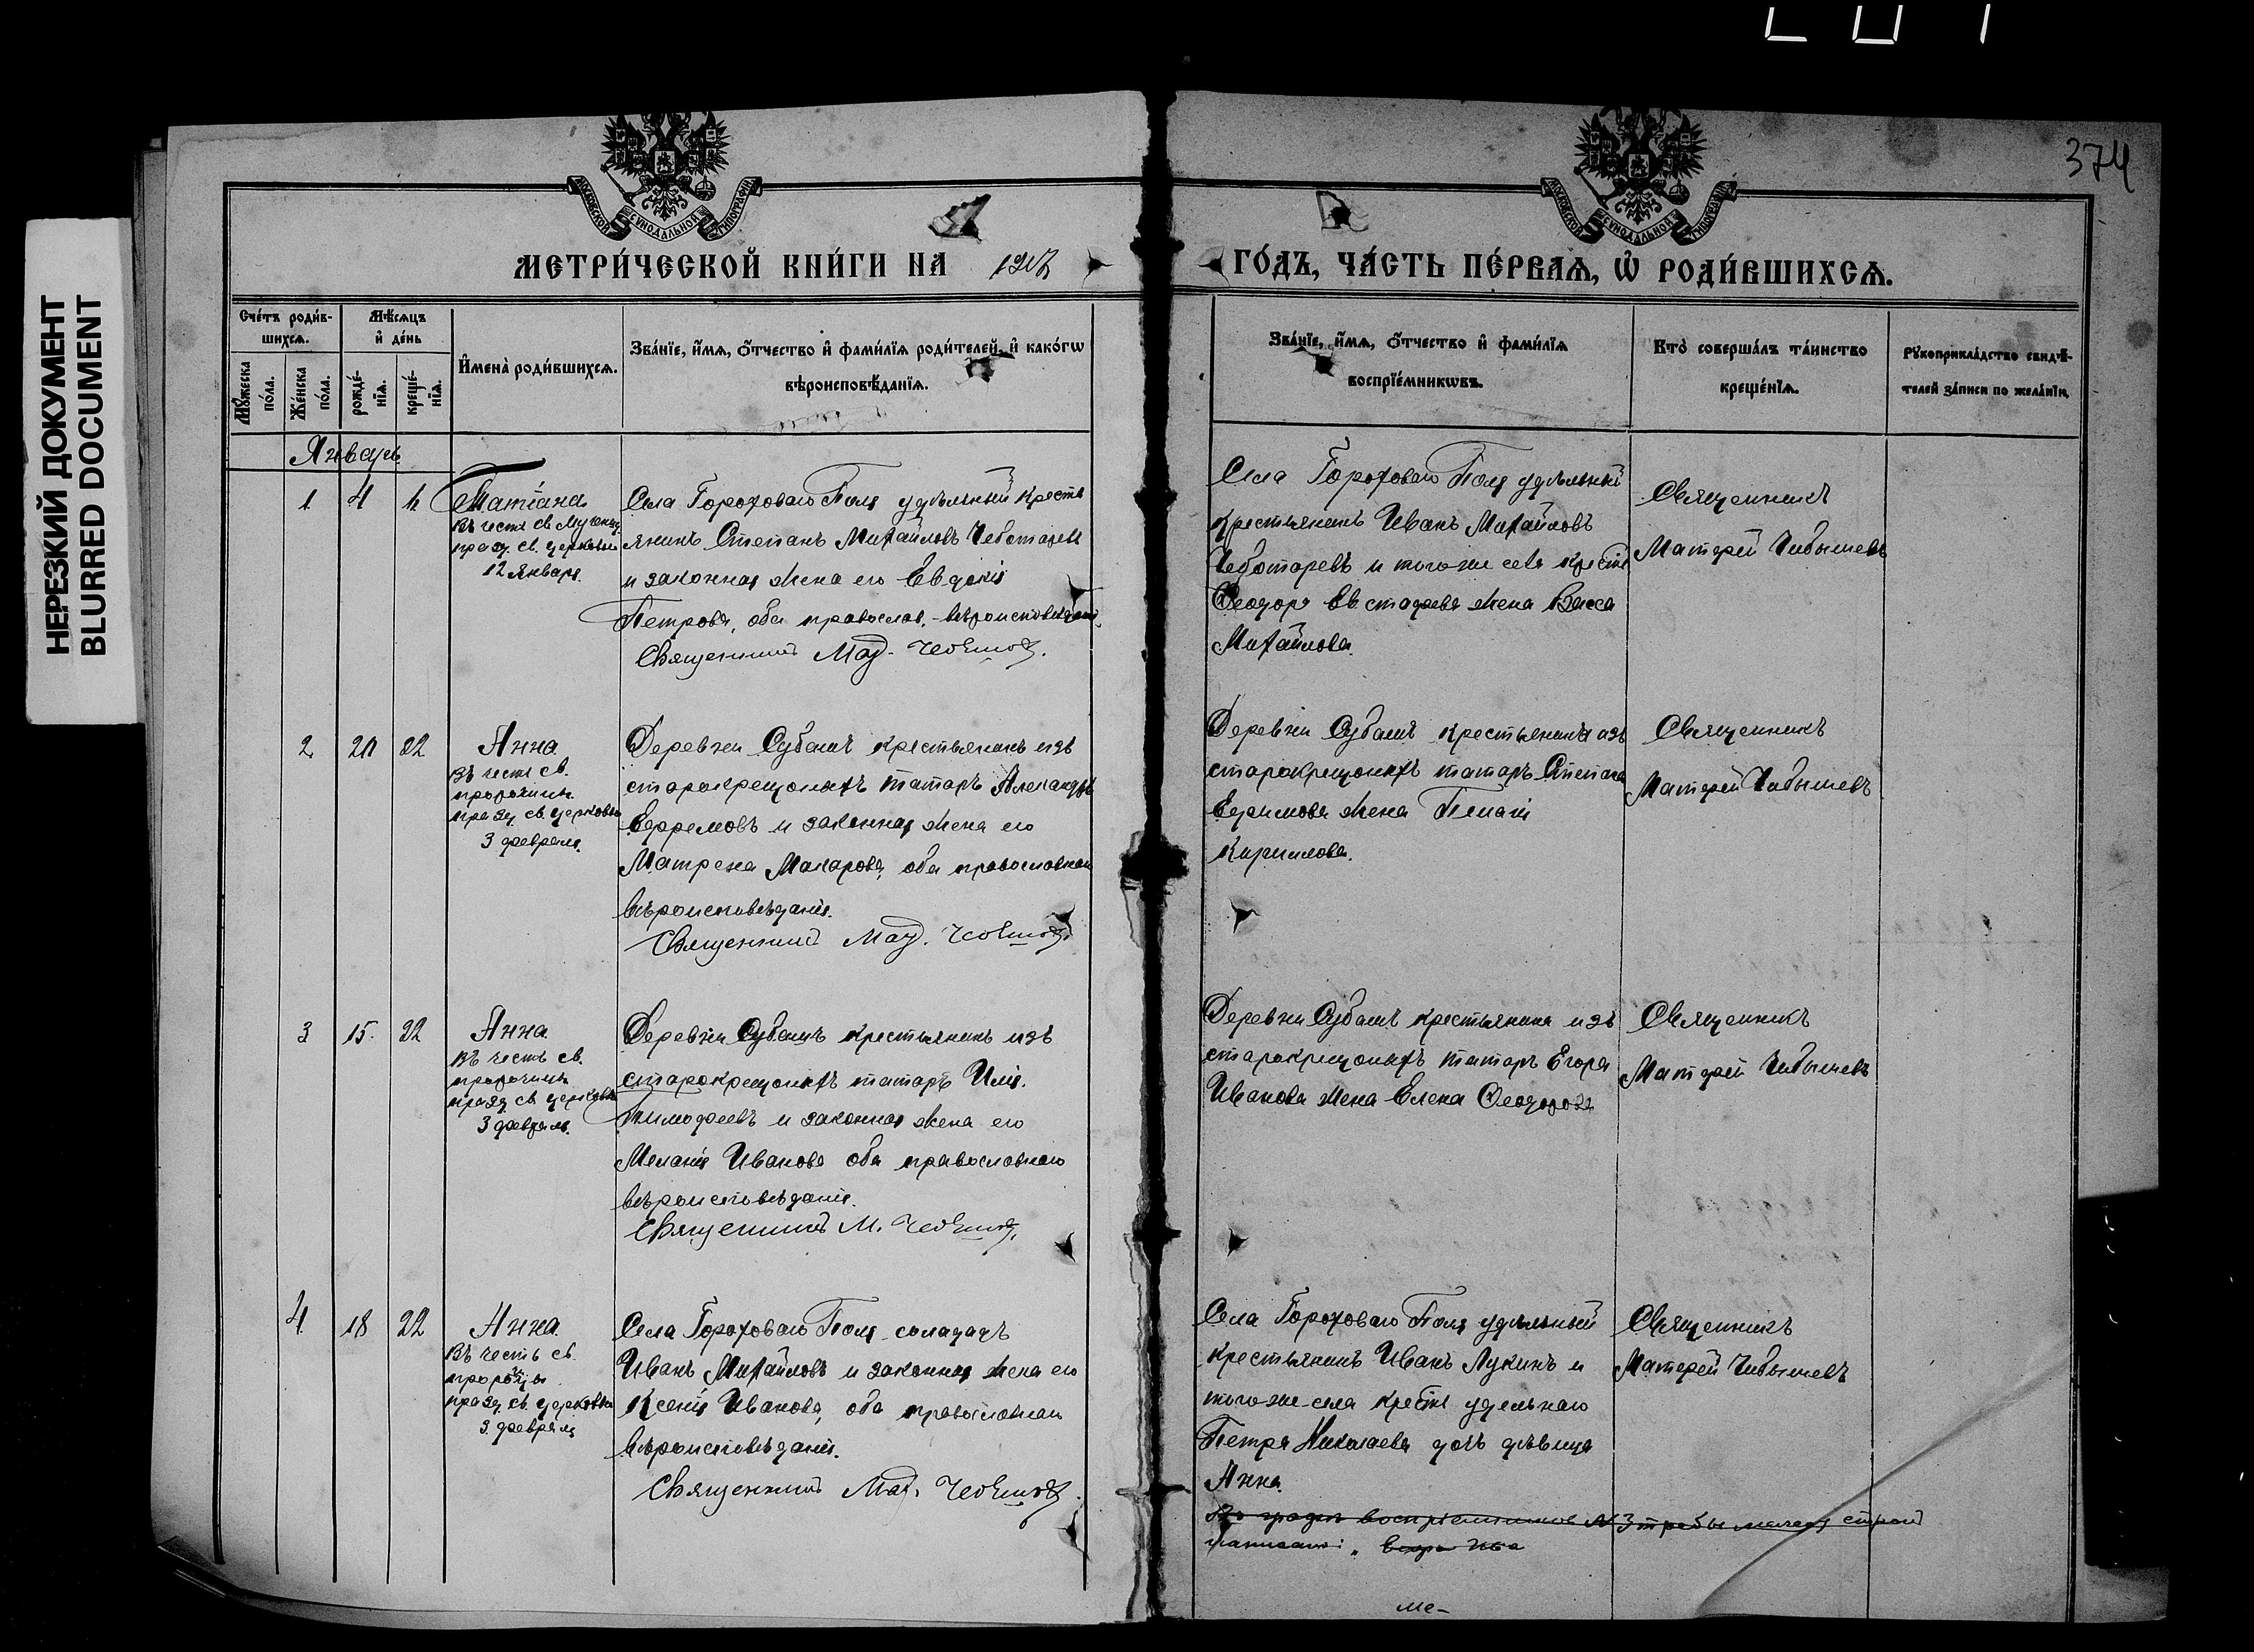 374
НЕРЕЗКИЙ ДОКУМЕНТ
BLURRED DOCUMENT
МОСКОВСКОЙ СѴНОДАЛЬНОЙ ТИПОГРАФІИ
МОСКОВСКОЙ СѴНОДАЛЬНОЙ ТИПОГРАФІИ
МЕТРИ́ЧЕСКОЙ КНИ́ГИ НА
ГО́ДЪ, ЧА́СТЬ ПЕ́РВАѦ, Ѡ҆ РОДИ́ВШИХСѦ.
Сче́тъ роди́в-
шихсѧ.
Мѣ́сѧцъ
и҆ де́нь
Мꙋ́жеска
по́ла.
Же́нска
по́ла.
рожде́-
нїѧ.
креще́-
нїѧ.
И҆мена̀ роди́вшихсѧ.
Зва́нїе, и҆́мѧ, ѻ҆́тчество и҆ фами́лїѧ роди́телей, и҆ како́гѡ
вѣроисповѣ́данїѧ.
Зва́нїе, и҆́мѧ, ѻ҆́тчество и҆ фами́лїѧ
воспрїе́мникѡвъ.
Кто̀ соверша́лъ та́инство
креще́нїѧ.
Рꙋкоприкла́дство свидѣ́-
телей за́писи по жела́нїю.
Январь
1 4
Татіана
Въ честь св. Мучениц.
празд. св. церковью
12 Января.
Села Горохового Поля удѣльный кресть
янинъ Степанъ Михайловъ Чеботаревъ
и законная жена его Евдокія
Петрова, оба православ. вѣроисповѣданія.
Священникъ
Села Горохового Поля удѣльный
крестьянинъ Иванъ Михайловъ
Чеботаревъ и того-же села
Ѳеодора Евстафьева жена Васса
Михайлова.
Священникъ
Матѳей Чибышевъ
2 20 22
Анна
Въ честь св.
пророчицы
празд. св. церковью
3 февраля.
Деревни Субашъ крестьянинъ изъ
старокрещоныхъ татаръ Александръ
Ефремовъ и законная жена его
Матрена Макарова, оба православнаго
вѣроисповѣданія.
Священникъ
Деревни Субашъ крестьянина изъ
старокрещоныхъ татаръ Степана
Ефимова жена
Кириллова.
Священникъ
Матѳей Чибышевъ
3 15. 22
Анна
Въ честь св.
пророчицы
празд. св. церковью
3 февраля.
Деревни Субашъ крестьянинъ изъ
старокрещоныхъ татаръ Илія
Тимофеевъ и законная жена его
Меланія Иванова оба православнаго
вѣроисповѣданія.
Священникъ М.
Деревни Субашъ крестьянина изъ
старокрещоныхъ татаръ Егора
Иванова жена Елена Ѳеодорова
Священникъ
Матѳей Чибышевъ
4. 18 22
Анна
Въ честь св.
пророчицы
празд. св. церковью
3. февраля
Села Горохового Поля солдадъ
Иванъ Михайловъ и законная жена его
Ксенія Иванова, оба православнаго
вѣроисповѣданія.
Священникъ
Села Горохового Поля удѣльный
крестьянинъ Иванъ Лукинъ и
того-же-села удельнаго
Петра Николаева дочь дѣвица
Анна.
Священникъ
Матѳей Чибышевъ